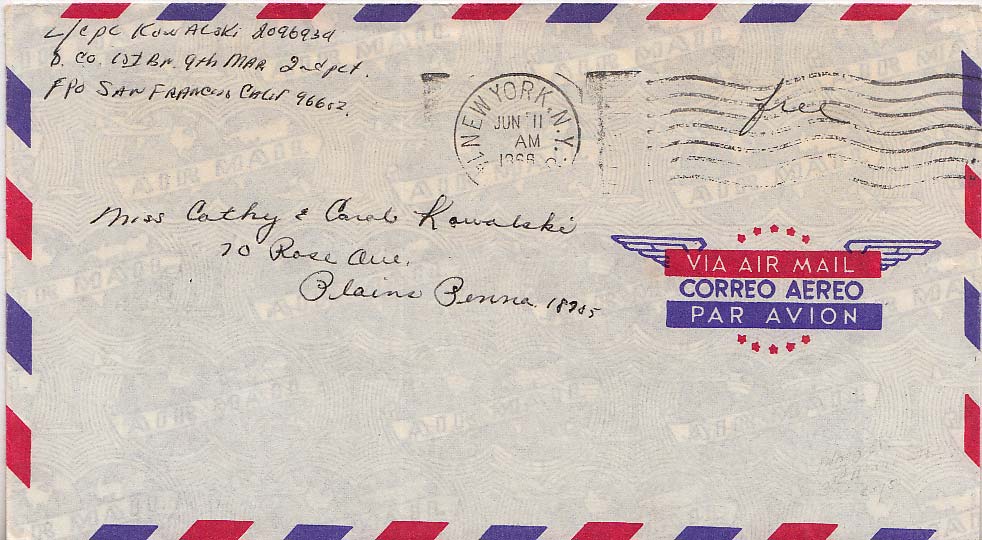 L/CPL KOWALSKI 2096939
D. CO. 1ST BN. 9th MAR 2nd plt.
FPO SAN FRANCISCO CALIF 96602
NEW YORK, N.Y.
JUN 11
AM
1966
free
Miss Cathy & Carol Kowalski
70 Rose Ave.
Plains Penna. 18705
VIA AIR MAIL
CORREO AEREO
PAR AVION